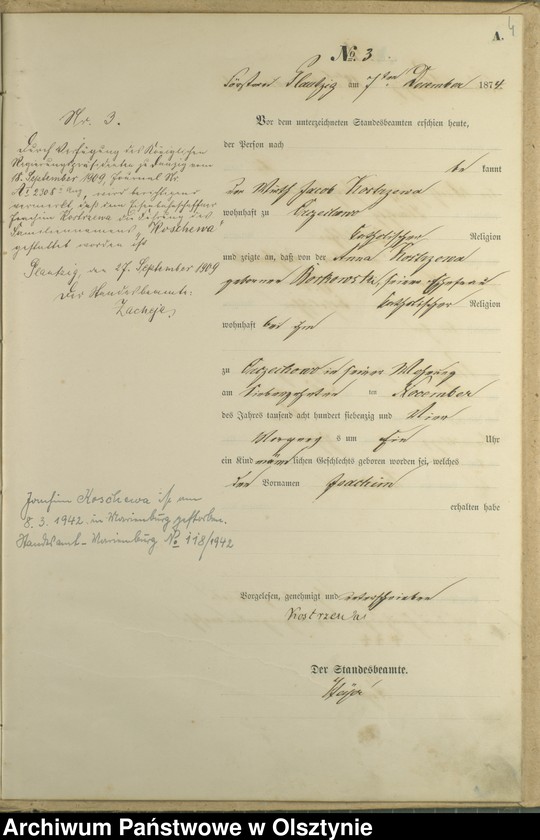 A. 4
No. 3
Försterei Plautzig am 7ten December 1874.
Vor dem unterzeichneten Standesbeamten erschien heute,
der Person nach
be kannt
der Wirth Jacob Kostrzewa
wohnhaft zu
katholischer Religion
und zeigte an, daß von der Anna Kostrzewa
geborenen Borkowska, seiner Ehefrau
katholischer Religion
wohnhaft bei ihm
zu in seiner Wohnung
am siebenzehnten ten November
des Jahres tausend acht hundert siebenzig und Vier
Morgens um Ein Uhr
ein Kind männlichen Geschlechts geboren worden sei, welches
den Vornamen Joachim
erhalten habe
Vorgelesen, genehmigt und unterschrieben
Kostrzewa
Der Standesbeamte.
Nr. 3.
Durch Verfügung des Königlichen
Regierungspräsidenten zu Danzig vom
18. September 1909, Journal Nr.
wird berichtigend
vermerkt, daß dem
Joachim Kostrzewa die Führung des
Familiennamens "Koschewa"
gestattet worden ist
Plautzig, den 27. September 1909
Der Standesbeamte:
Joachim Koschewa ist am
8. 3. 1942 in Marienburg gestorben.
Standesamt - Marienburg No 118/1942
Archiwum Państwowe w Olsztynie